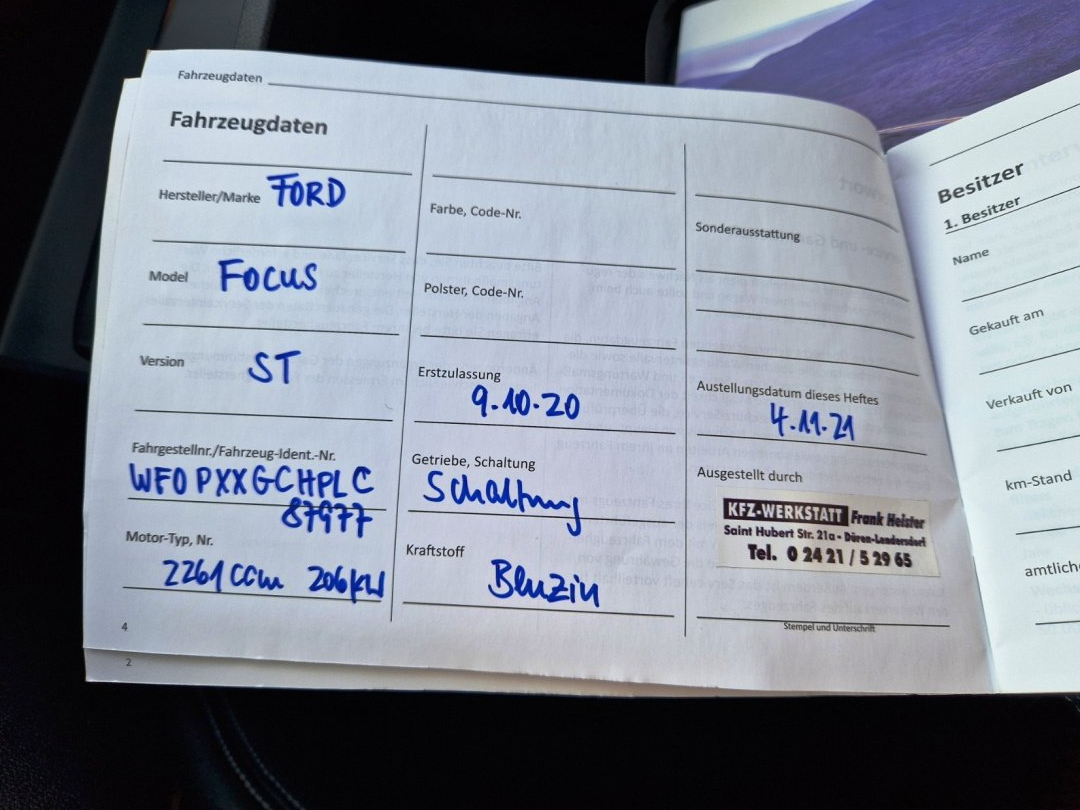 Fahrzeugdaten
Fahrzeugdaten
Hersteller/Marke FORD
Model FOCUS
Version ST
Fahrgestellnr./Fahrzeug-Ident.-Nr.
WF0PXXGCHPLC
87977
Motor-Typ, Nr.
2261 ccm 206 kW
4
2
Farbe, Code-Nr.
Polster, Code-Nr.
Erstzulassung
9.10.20
Getriebe, Schaltung
Schaltung
Kraftstoff
Benzin
Sonderausstattung
Austellungsdatum dieses Heftes
4.11.21
Ausgestellt durch
KFZ-WERKSTATT Frank Heister
Saint Hubert Str. 21a - Düren-Lendersdorf
Tel. 0 24 21 / 5 29 65
Stempel und Unterschrift
Besitzer
1. Besitzer
Name
Gekauft am
Verkauft von
km-Stand